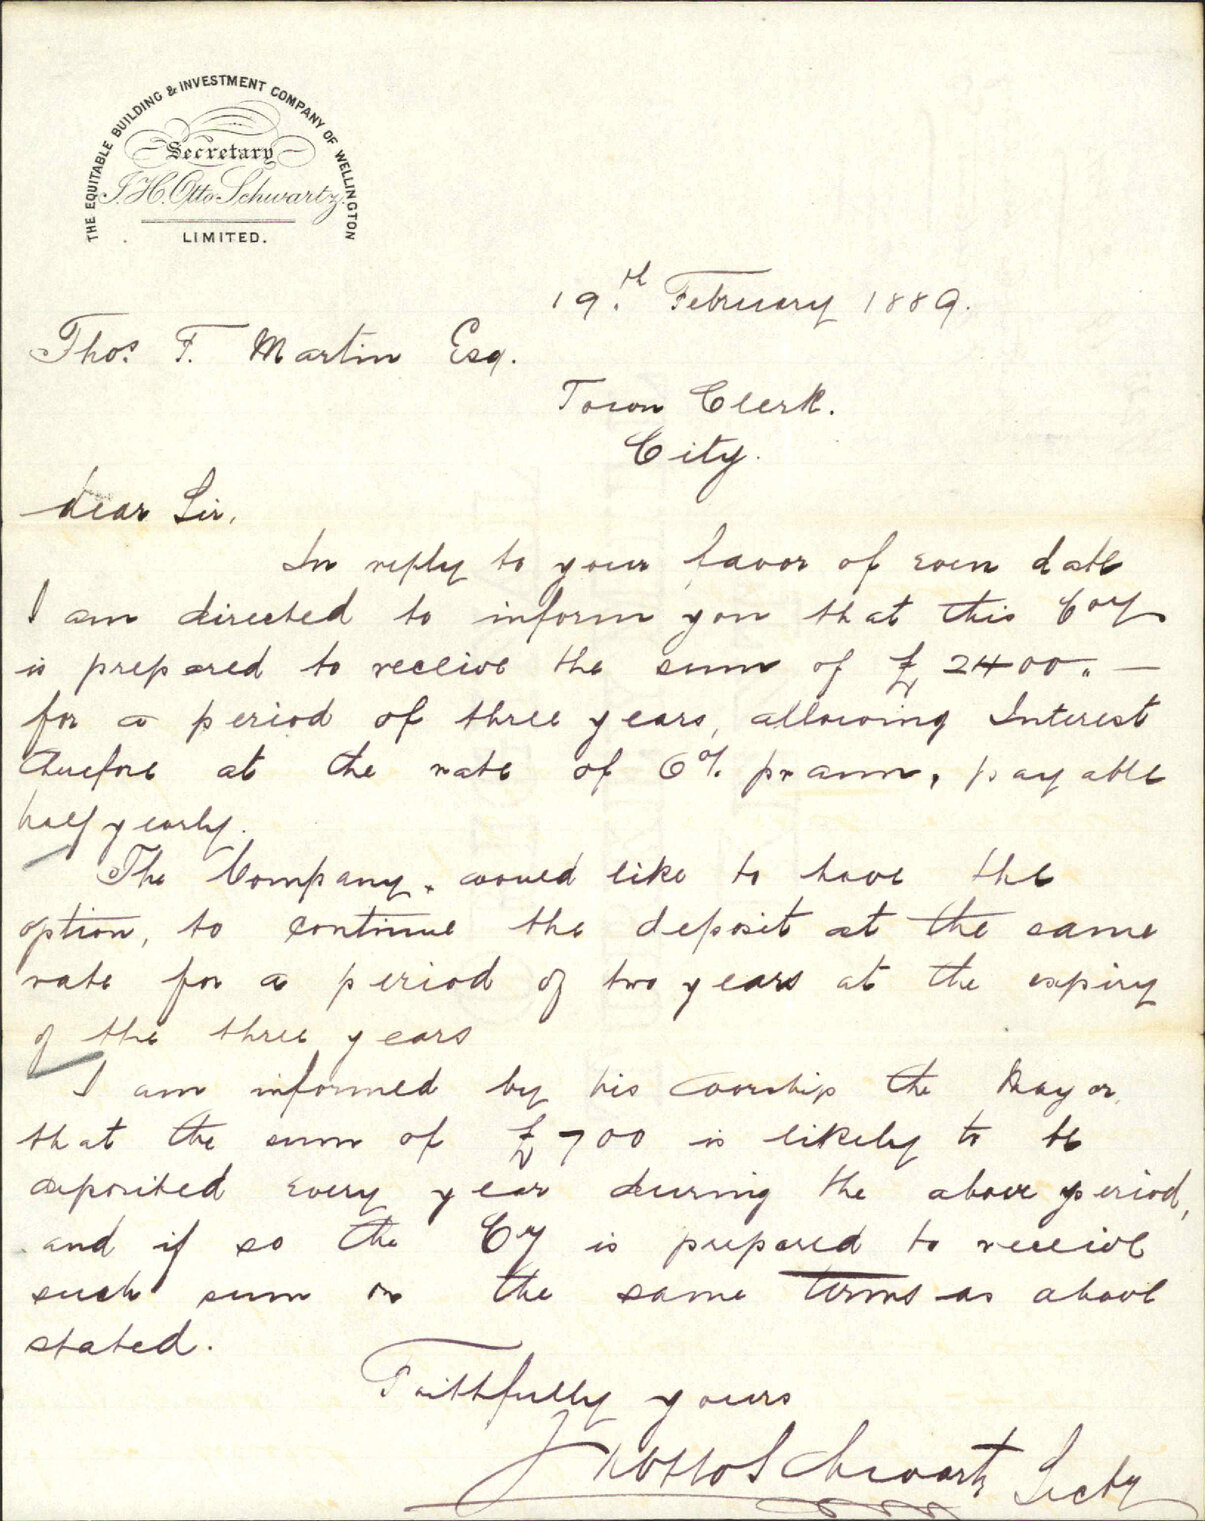 THE EQUITABLE BUILDING & INVESTMENT COMPANY OF WELLINGTON
Secretary
J. H. Otto Schwartz
LIMITED.
19.th February 1889.
Thos. F. Martin Esq.
Town Clerk.
City.
dear Sir,
In reply to your favor of even date
I am directed to inform you that this Coy
is prepared to receive the sum of £2400.. —
for a period of three years, allowing Interest
therefore at the rate of 6% pr ann, payable
half yearly.
The Company. would like to have the
option, to continue the deposit at the same
rate for a period of two years at the expiry
of the three years
I am informed by his worship the Mayor,
that the sum of £700 is likely to be
deposited every year during the above period,
and if so the Cy is prepared to receive
such sum on the same terms as above
stated.
Faithfully yours
J H Otto Schwartz Secty